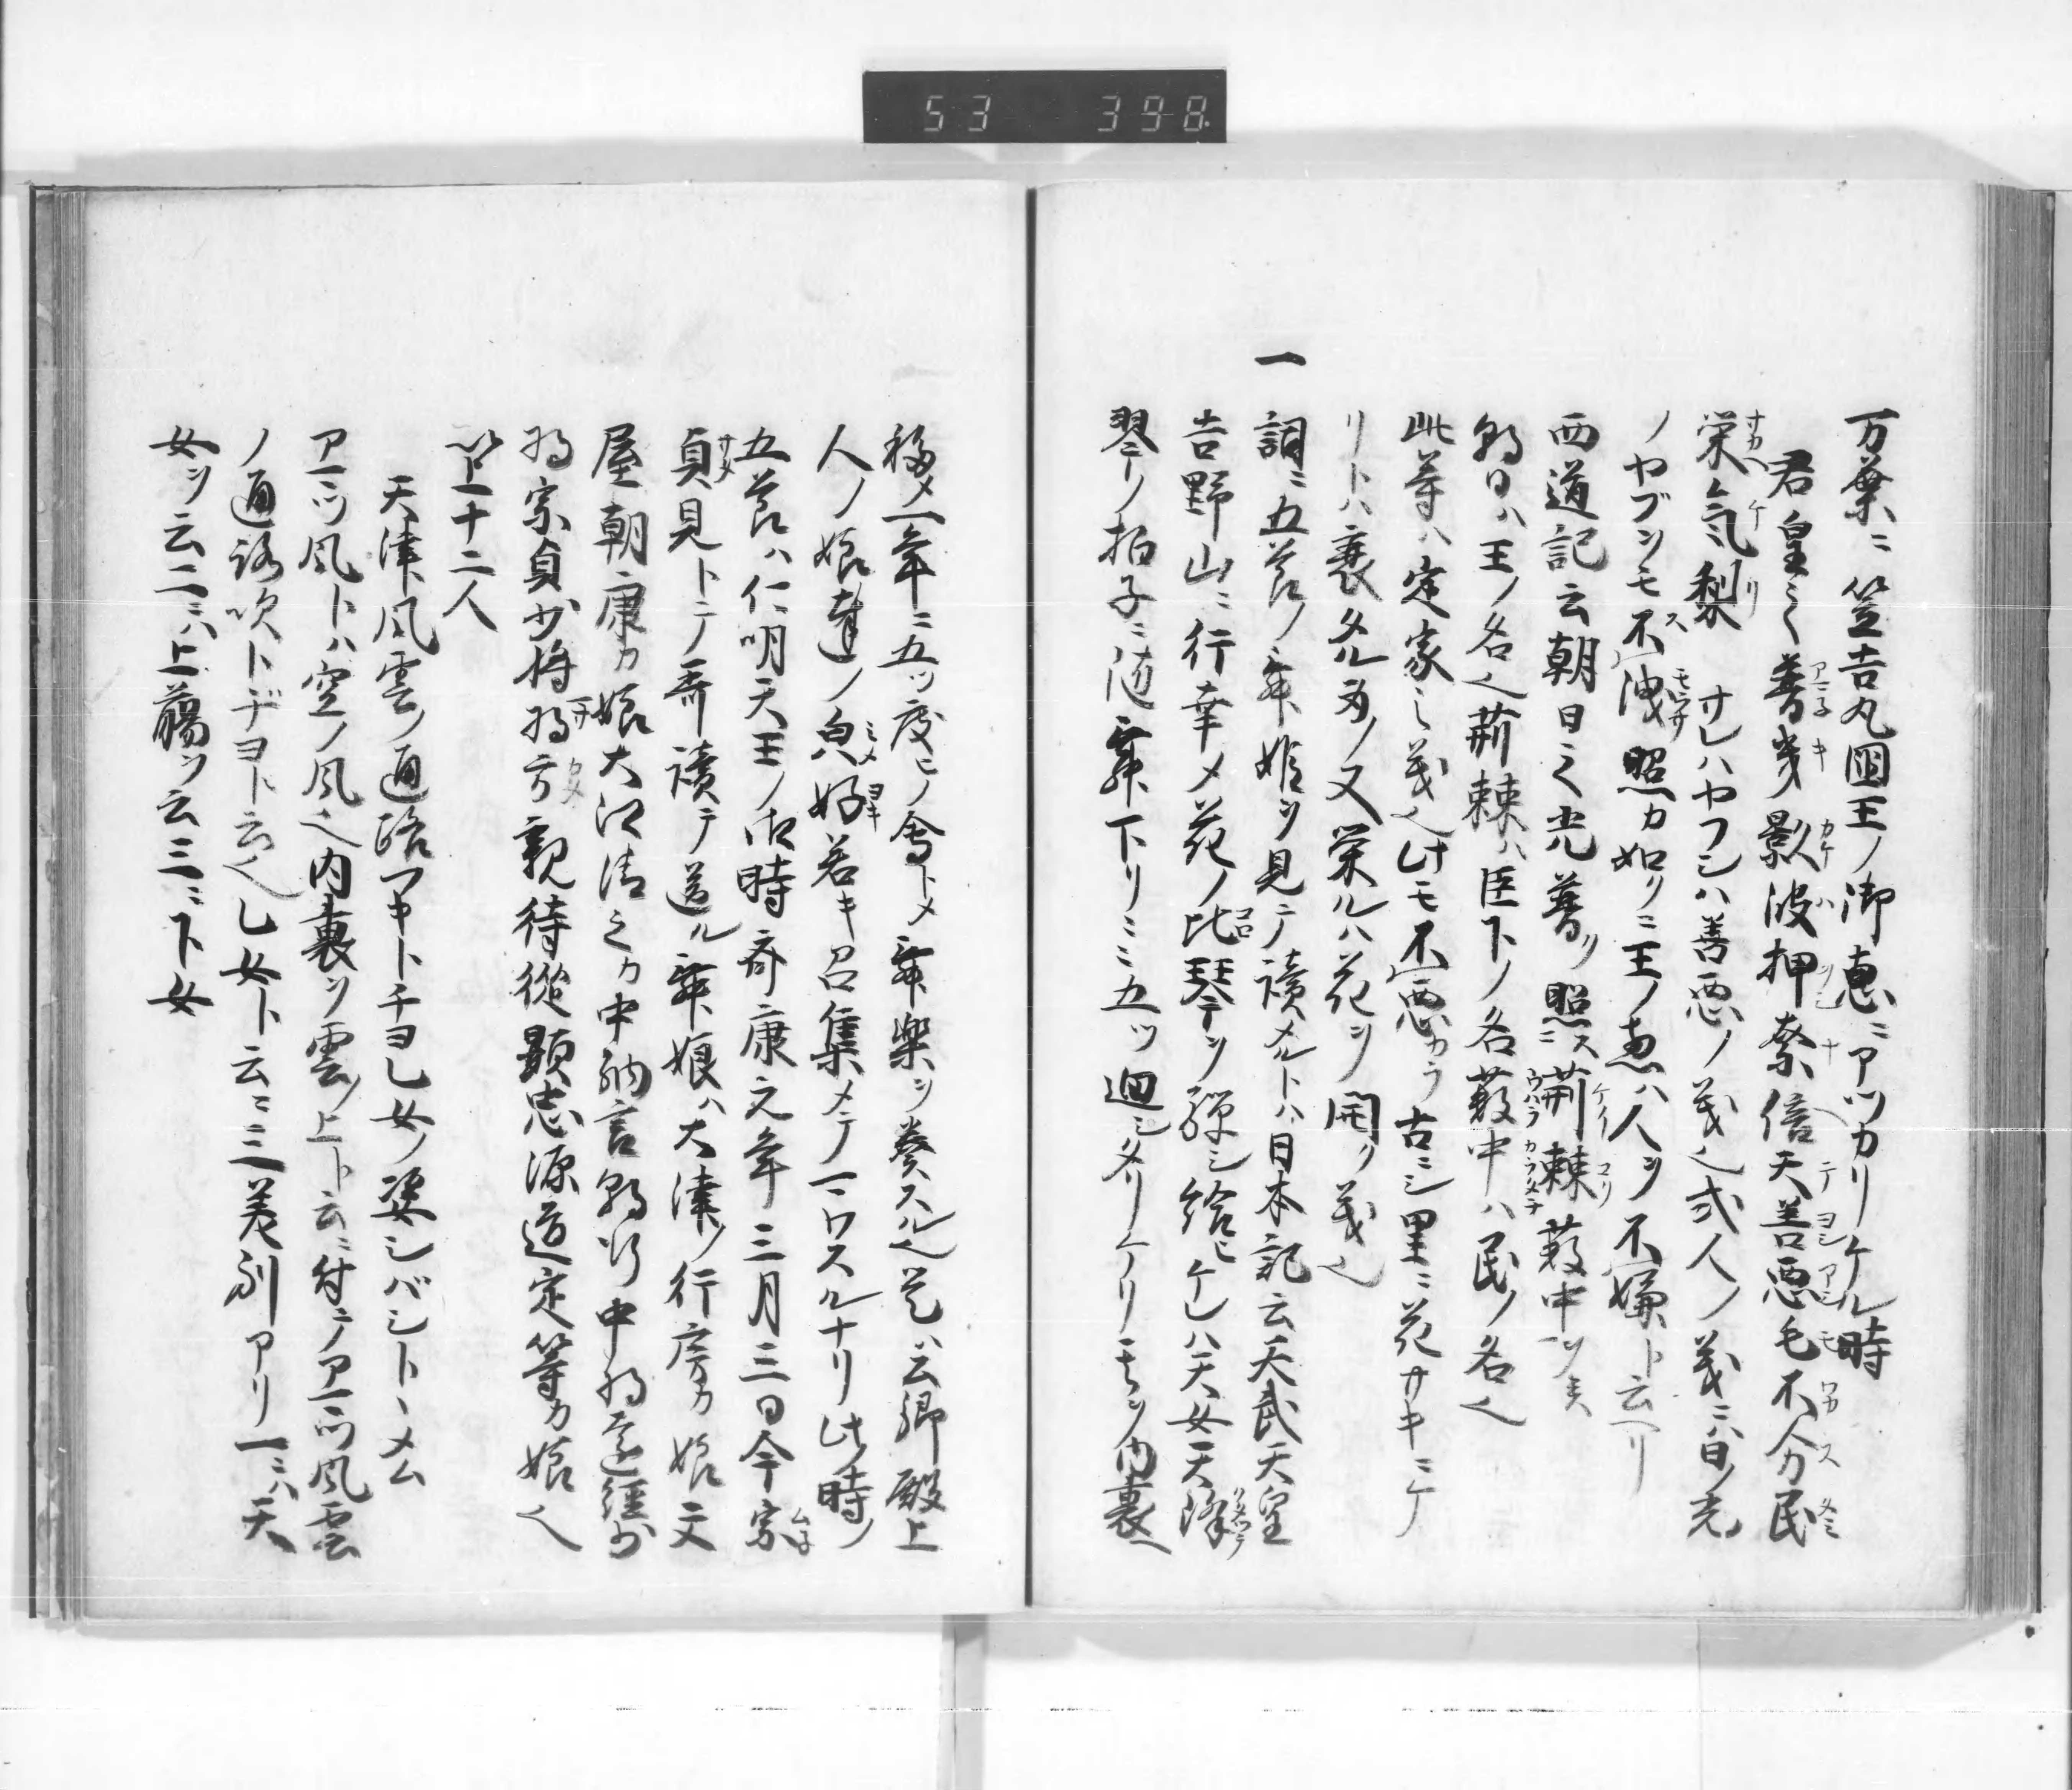 53 398
万葉ニ笠吉丸国王ノ御恵ニアツカリケル時
君皇之普幾影波押奈信天善悪毛不分民
栄気梨 サレハヤフシハ善悪ノ義也或人ノ義ニハ日ノ光
ノヤブシモ不洩照カ如クニ王ノ恵ハ人ヲ不嫌ト云ヘリ
西道記云朝日之光普ク照ス荊棘藪中ヲ矣
朝日ハ王ノ名也荊棘ハ臣下ノ名藪中ハ民ノ名也
此等ハ定家之義也此モ不悪カラ古ニシ里ニ花サキニケ
リトハ衰タル身ノ又栄ルハ花ヲ開ク義也
一 詞ニ五節ノ舞姫ヲ見テ読メルトハ日本記云天武天皇
吉野山ニ行幸メ花ノ比琴ヲ弾シ給ヒケレハ天女天降
琴ノ拍子ニ随舞下リニ五ツ廻シタリケリ其ヲ内裏ヘ
移メ一年ニ五ツ度ノ会トメ舞楽ヲ奏スル也是ハ公卿殿上
人ノ娘達ノ皃好若キ召集メテマワスルナリ此時ノ
五節ハ仁明天王ノ御時斉康元年三月三日今宗
貞見トテ哥読テ送ル舞娘ハ大津ノ行房カ娘文
屋朝康カ娘大江清之カ中納言朝行中将遠経少
将宗貞少将将方親待従顕忠源道定等カ娘也
以上十二人
天津風雲ノ通路フキトチヨ乙女ノ姿シバシトヽメム
アマツ風トハ空ノ風也内裏ヲ雲ノ上ト云ニ付テノアマツ風雲
ノ通路吹トヂヨト云也乙女ト云ニ三ノ差別アリ一ニハ天
女ヲ云二ニハ上﨟ヲ云三ニ下女